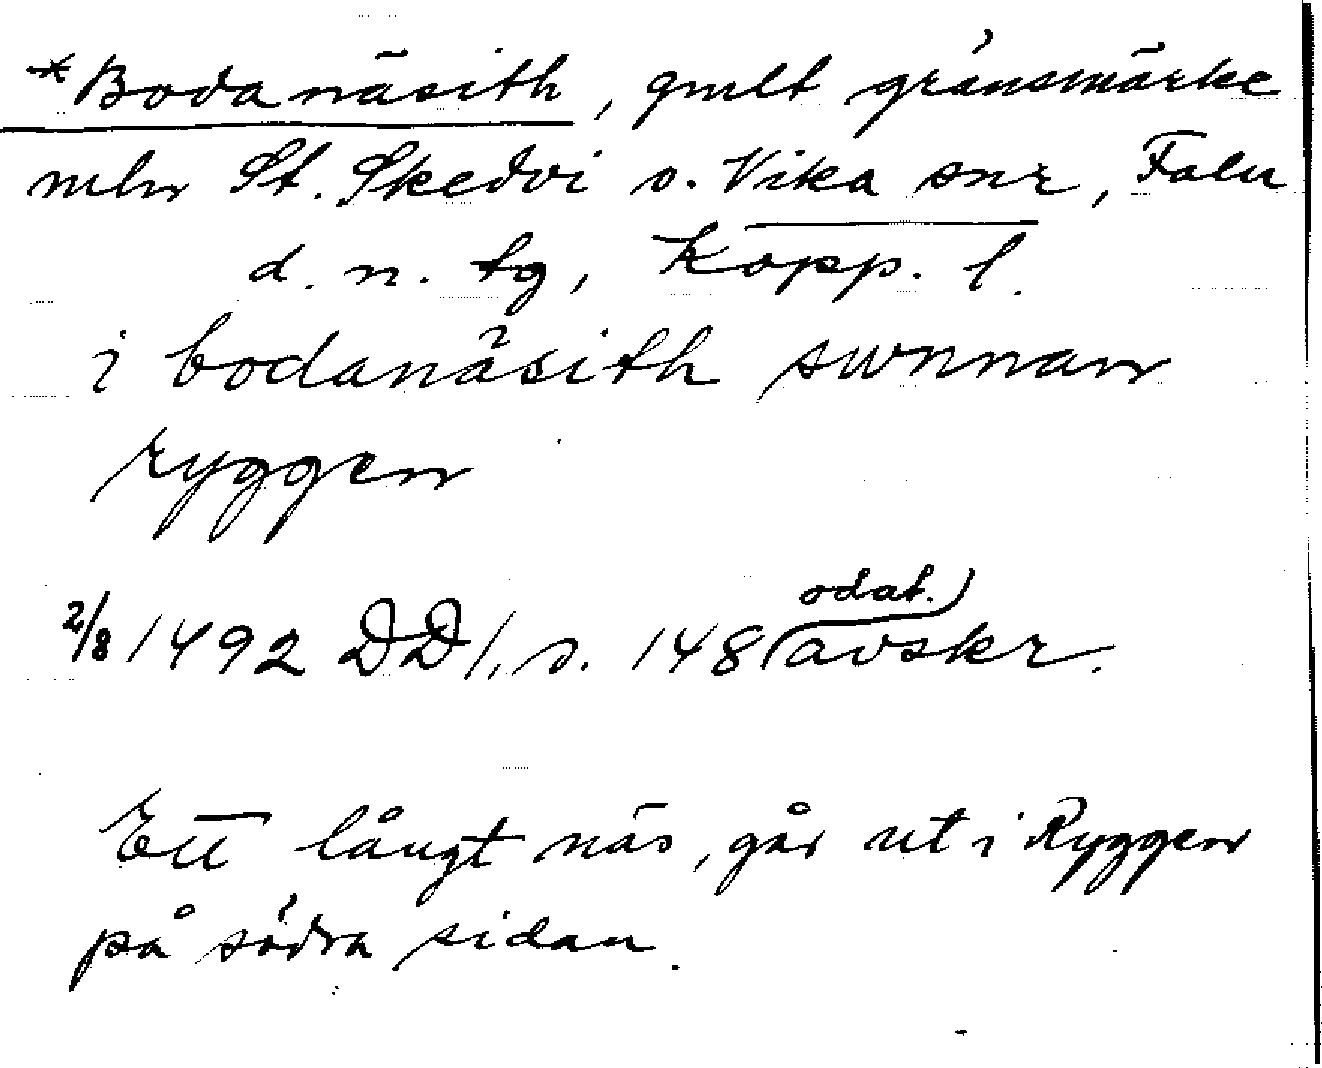 *Bodanäsith, gmlt gränsmärke
mln St. Skedvi o. Vika snr, Falu
d. n. tg, Kopp. l.
i bodanäsith swnnan
ryggen
2/8 1492 DD 1, s. 148 (odat.) avskr.
Ett långt näs, går ut i Ryggen
på södra sidan.